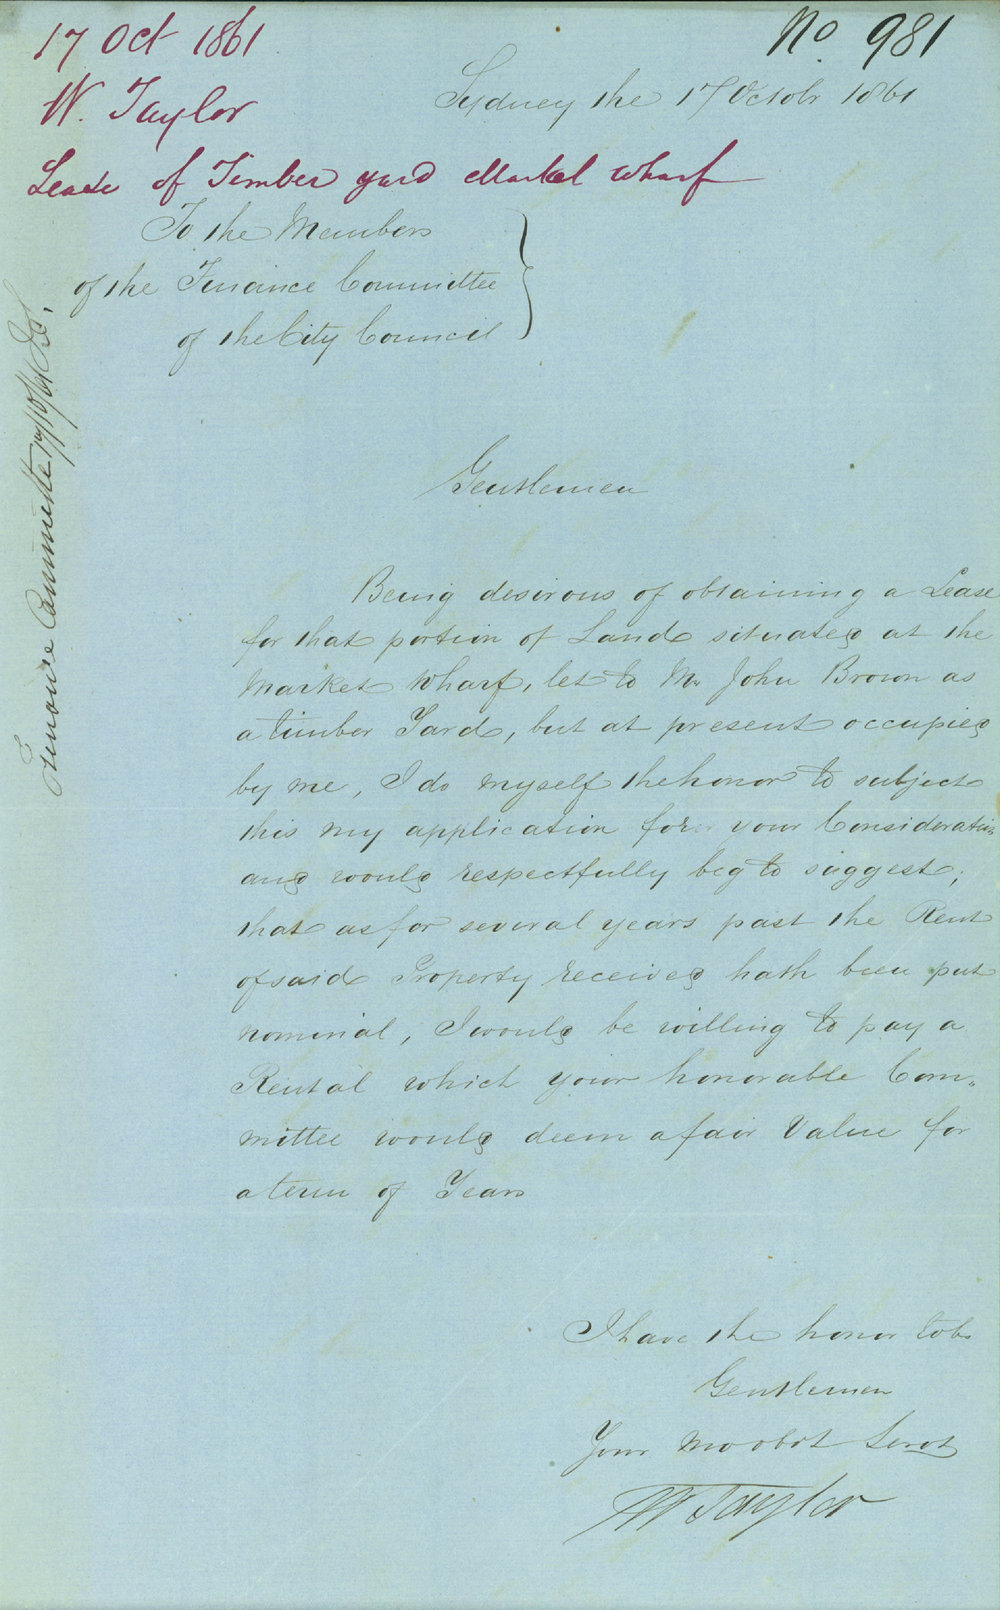 17 Oct 1861
No 981
W. Taylor
Sydney the 17 Octobr 1861
Lease of Timber yard Market Wharf
To the Members
of the Finance Committee
of the City Council
Finance Committee
Gentlemen
Being desirous of obtaining a Lease
for that portion of Land situated at the
Market Wharf, let to Mr John Brown as
a timber Yard, but at present occupied
by me, I do myself the honor to subject
this my application for your Consideration
and would respectfully beg to suggest,
that as for several years past the Rent
of said Property received hath been but
nominal, I would be willing to pay a
Rental which your honorable Com„
mittee would deem a fair Value for
a term of Years
I have the honor to be
Gentlemen
Your Mo obdt Servt
W Taylor